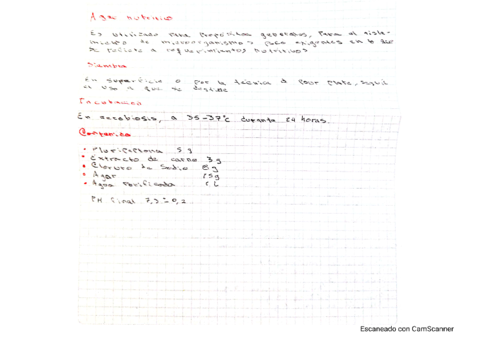 Agar nutritivo
Es utilizado para propositos generales, para el aisla-
miento de microorganismos poco exigentes en lo que
se refiere a requerimientos nutritivos
Siembra
En superficie o por la técnica de pour plate, según
el uso a que se destine
Incubación
En aerobiosis, a 35-37°C durante 24 horas.
Contenido
• Pluripeptona 5 g
• Extracto de carne 3 g
• Cloruro de Sodio 8 g
• Agar 15 g
• Agua purificada 1 L
PH final 7,3 ± 0,2
Escaneado con CamScanner